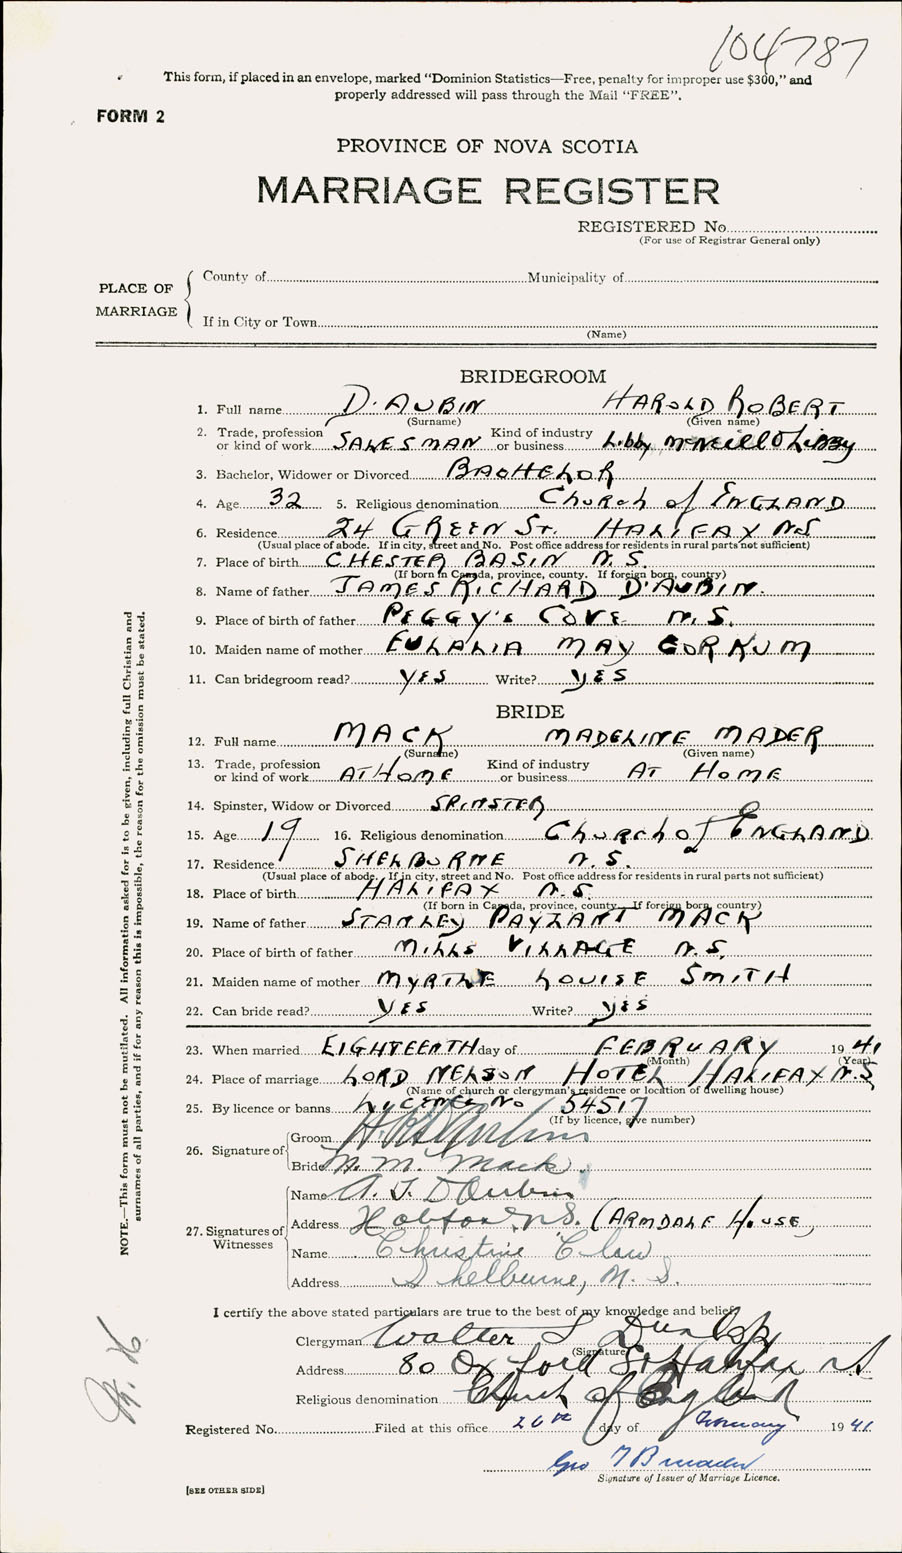 104787
This form, if placed in an envelope, marked "Dominion Statistics—Free, penalty for improper use $300," and
properly addressed will pass through the Mail "FREE".
FORM 2
PROVINCE OF NOVA SCOTIA
MARRIAGE REGISTER
REGISTERED No
(For use of Registrar General only)
PLACE OF MARRIAGE
County of Municipality of
If in City or Town
(Name)
BRIDEGROOM
1. Full name D'AUBIN HAROLD ROBERT
(Surname) (Given name)
2. Trade, profession or kind of work SALESMAN Kind of industry or business Libby McNeill & Libby
3. Bachelor, Widower or Divorced BACHELOR
4. Age 32 5. Religious denomination Church of ENGLAND
6. Residence 24 GREEN St. HALIFAX N.S
(Usual place of abode. If in city, street and No. Post office address for residents in rural parts not sufficient)
7. Place of birth CHESTER BASIN N.S.
(If born in Canada, province, county. If foreign born, country)
8. Name of father JAMES RICHARD D'AUBIN.
9. Place of birth of father PEGGY'S COVE N.S.
10. Maiden name of mother EULALIA MAY GORKUM
11. Can bridegroom read? YES Write? YES
BRIDE
12. Full name MACK MADELINE MADER
(Surname) (Given name)
13. Trade, profession or kind of work AT HOME Kind of industry or business AT HOME
14. Spinster, Widow or Divorced SPINSTER
15. Age 19 16. Religious denomination Church of ENGLAND
17. Residence SHELBURNE N.S.
(Usual place of abode. If in city, street and No. Post office address for residents in rural parts not sufficient)
18. Place of birth HALIFAX N.S.
(If born in Canada, province, county. If foreign born, country)
19. Name of father STANLEY PAYZANT MACK
20. Place of birth of father MILLS VILLAGE N.S.
21. Maiden name of mother MYRTLE LOUISE SMITH
22. Can bride read? YES Write? YES
23. When married EIGHTEENTH day of FEBRUARY 1941
(Month) (Year)
24. Place of marriage LORD NELSON HOTEL HALIFAX N.S
(Name of church or clergyman's residence or location of dwelling house)
25. By licence or banns LICENCE No 54517
(If by licence, give number)
26. Signature of
Groom H. R. D'Aubin
Bride M. M. Mack.
27. Signatures of Witnesses
Name A. J. D'Aubin
Address N.S. (ARMDALE HOUSE)
Name Christine
Address Shelburne, N.S.
I certify the above stated particulars are true to the best of my knowledge and belief.
Clergyman Walter S Dunlop
(Signature)
Address 80 Oxford St Halifax N S
Religious denomination Church of England
Registered No. Filed at this office 26th day of February 1941.
Geo
Signature of Issuer of Marriage Licence.
[SEE OTHER SIDE]
NOTE.—This form must not be mutilated. All information asked for is to be given, including full Christian and
surnames of all parties, and if for any reason this is impossible, the reason for the omission must be stated.